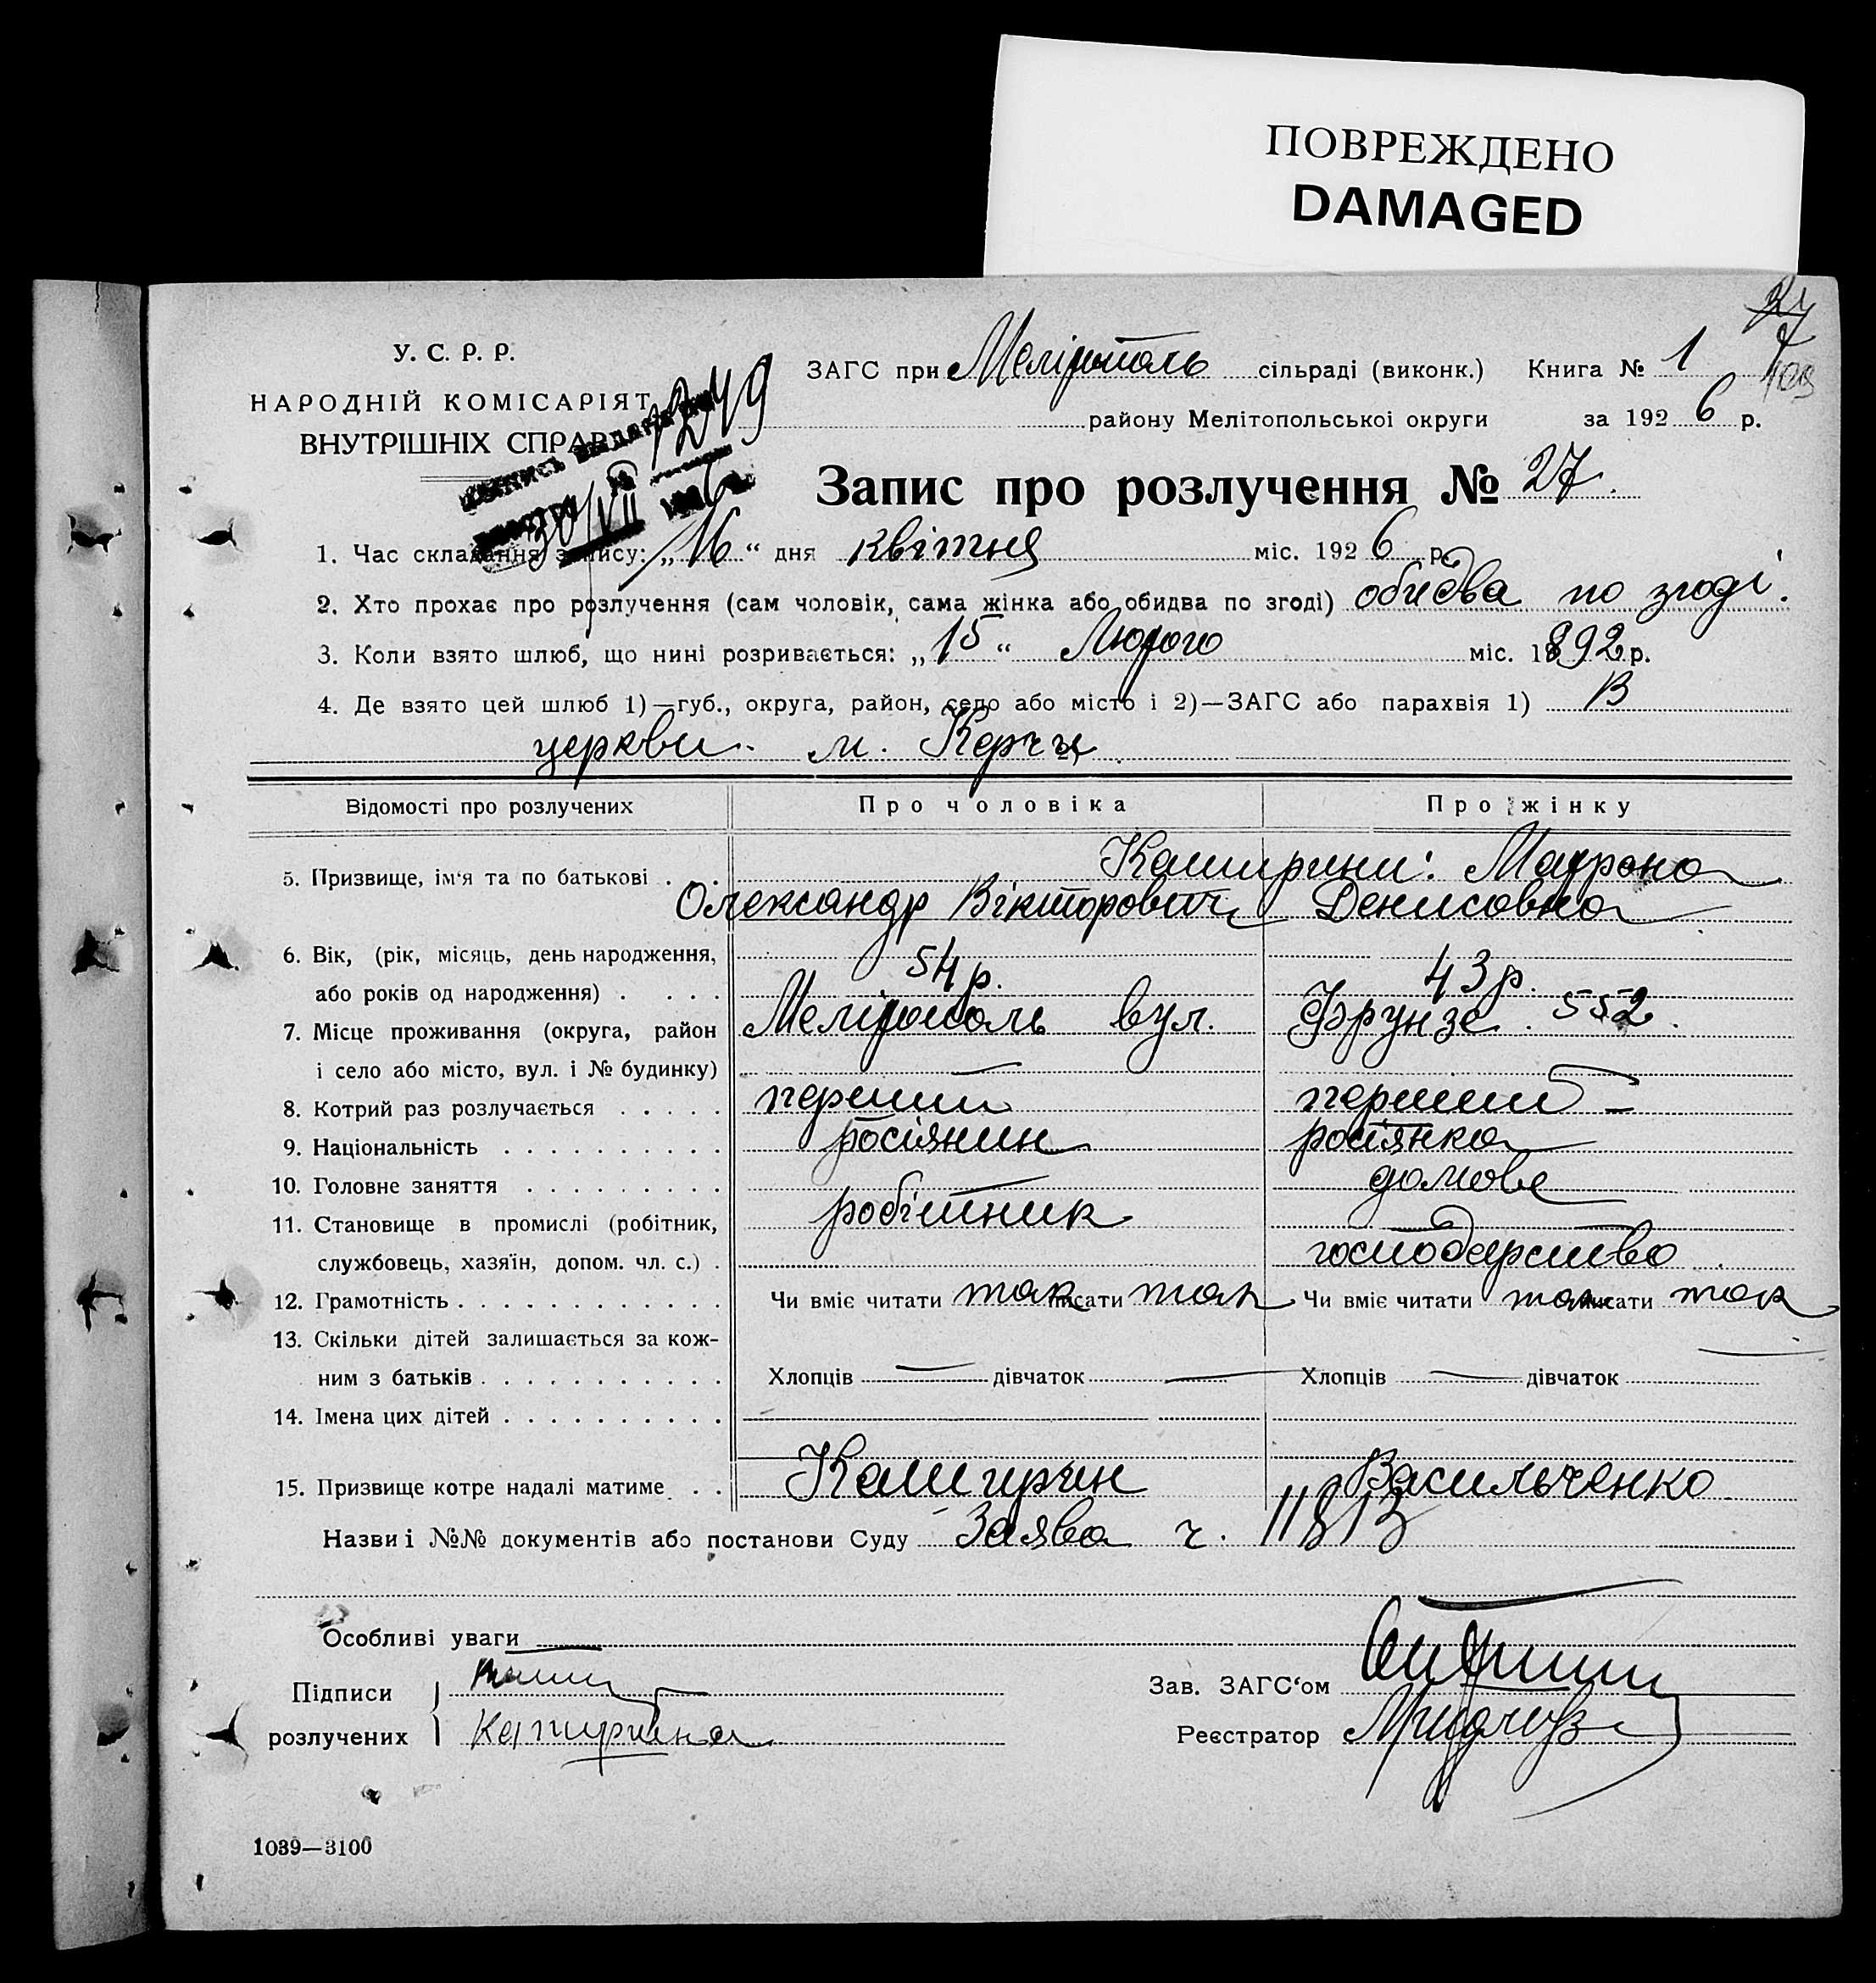 ПОВРЕЖДЕНО
DAMAGED
У. С. Р. Р.
НАРОДНІЙ КОМІСАРІЯТ
ВНУТРІШНІХ СПРАВ
1249
30/VII
ЗАГС при Мелітополь сільраді (виконк.) Книга № 1
району Мелітопольської округи за 1926 р.
Запис про розлучення № 27.
1. Час складання запису: „16“ дня квітня міс. 1926 р.
2. Хто прохає про розлучення (сам чоловік, сама жінка або обидва по згоді) обидва по згоді.
3. Коли взято шлюб, що нині розривається: „15“ Лютого міс. 1892 р.
4. Де взято цей шлюб 1)—губ., округа, район, село або місто і 2)—ЗАГС або парахвія 1) В
церкви м. Керчи
Відомості про розлучених Про чоловіка Про жінку
5. Призвище, ім'я та по батькові . . . Каширини: Матрона
Олександр Вікторович Денисовна
6. Вік, (рік, місяць, день народження,
або років од народження) . . . . 54 р. 43 р.
7. Місце проживання (округа, район Мелітополь вул. Фрунзе. 552.
і село або місто, вул. і № будинку)
8. Котрий раз розлучається . . . . . перший перший –
9. Національність . . . . . . . . . . росіянин росіянка
10. Головне заняття . . . . . . . . . домове
11. Становище в промислі (робітник, робітник
службовець, хазяїн, допом. чл. с.) . господарство
12. Грамотність . . . . . . . . . . . . Чи вміє читати так писати так Чи вміє читати так писати так
13. Скільки дітей залишається за кож-
ним з батьків . . . . . . . . . . . Хлопців — дівчаток — Хлопців — дівчаток
14. Імена цих дітей . . . . . . . . . .
15. Призвище котре надалі матиме . . Каширин Васильченко
Назви і №№ документів або постанови Суду Заява ч. 11813
Особливі уваги —
Підписи
розлучених Каширина
Зав. ЗАГС'ом
Реєстратор
1039—3100